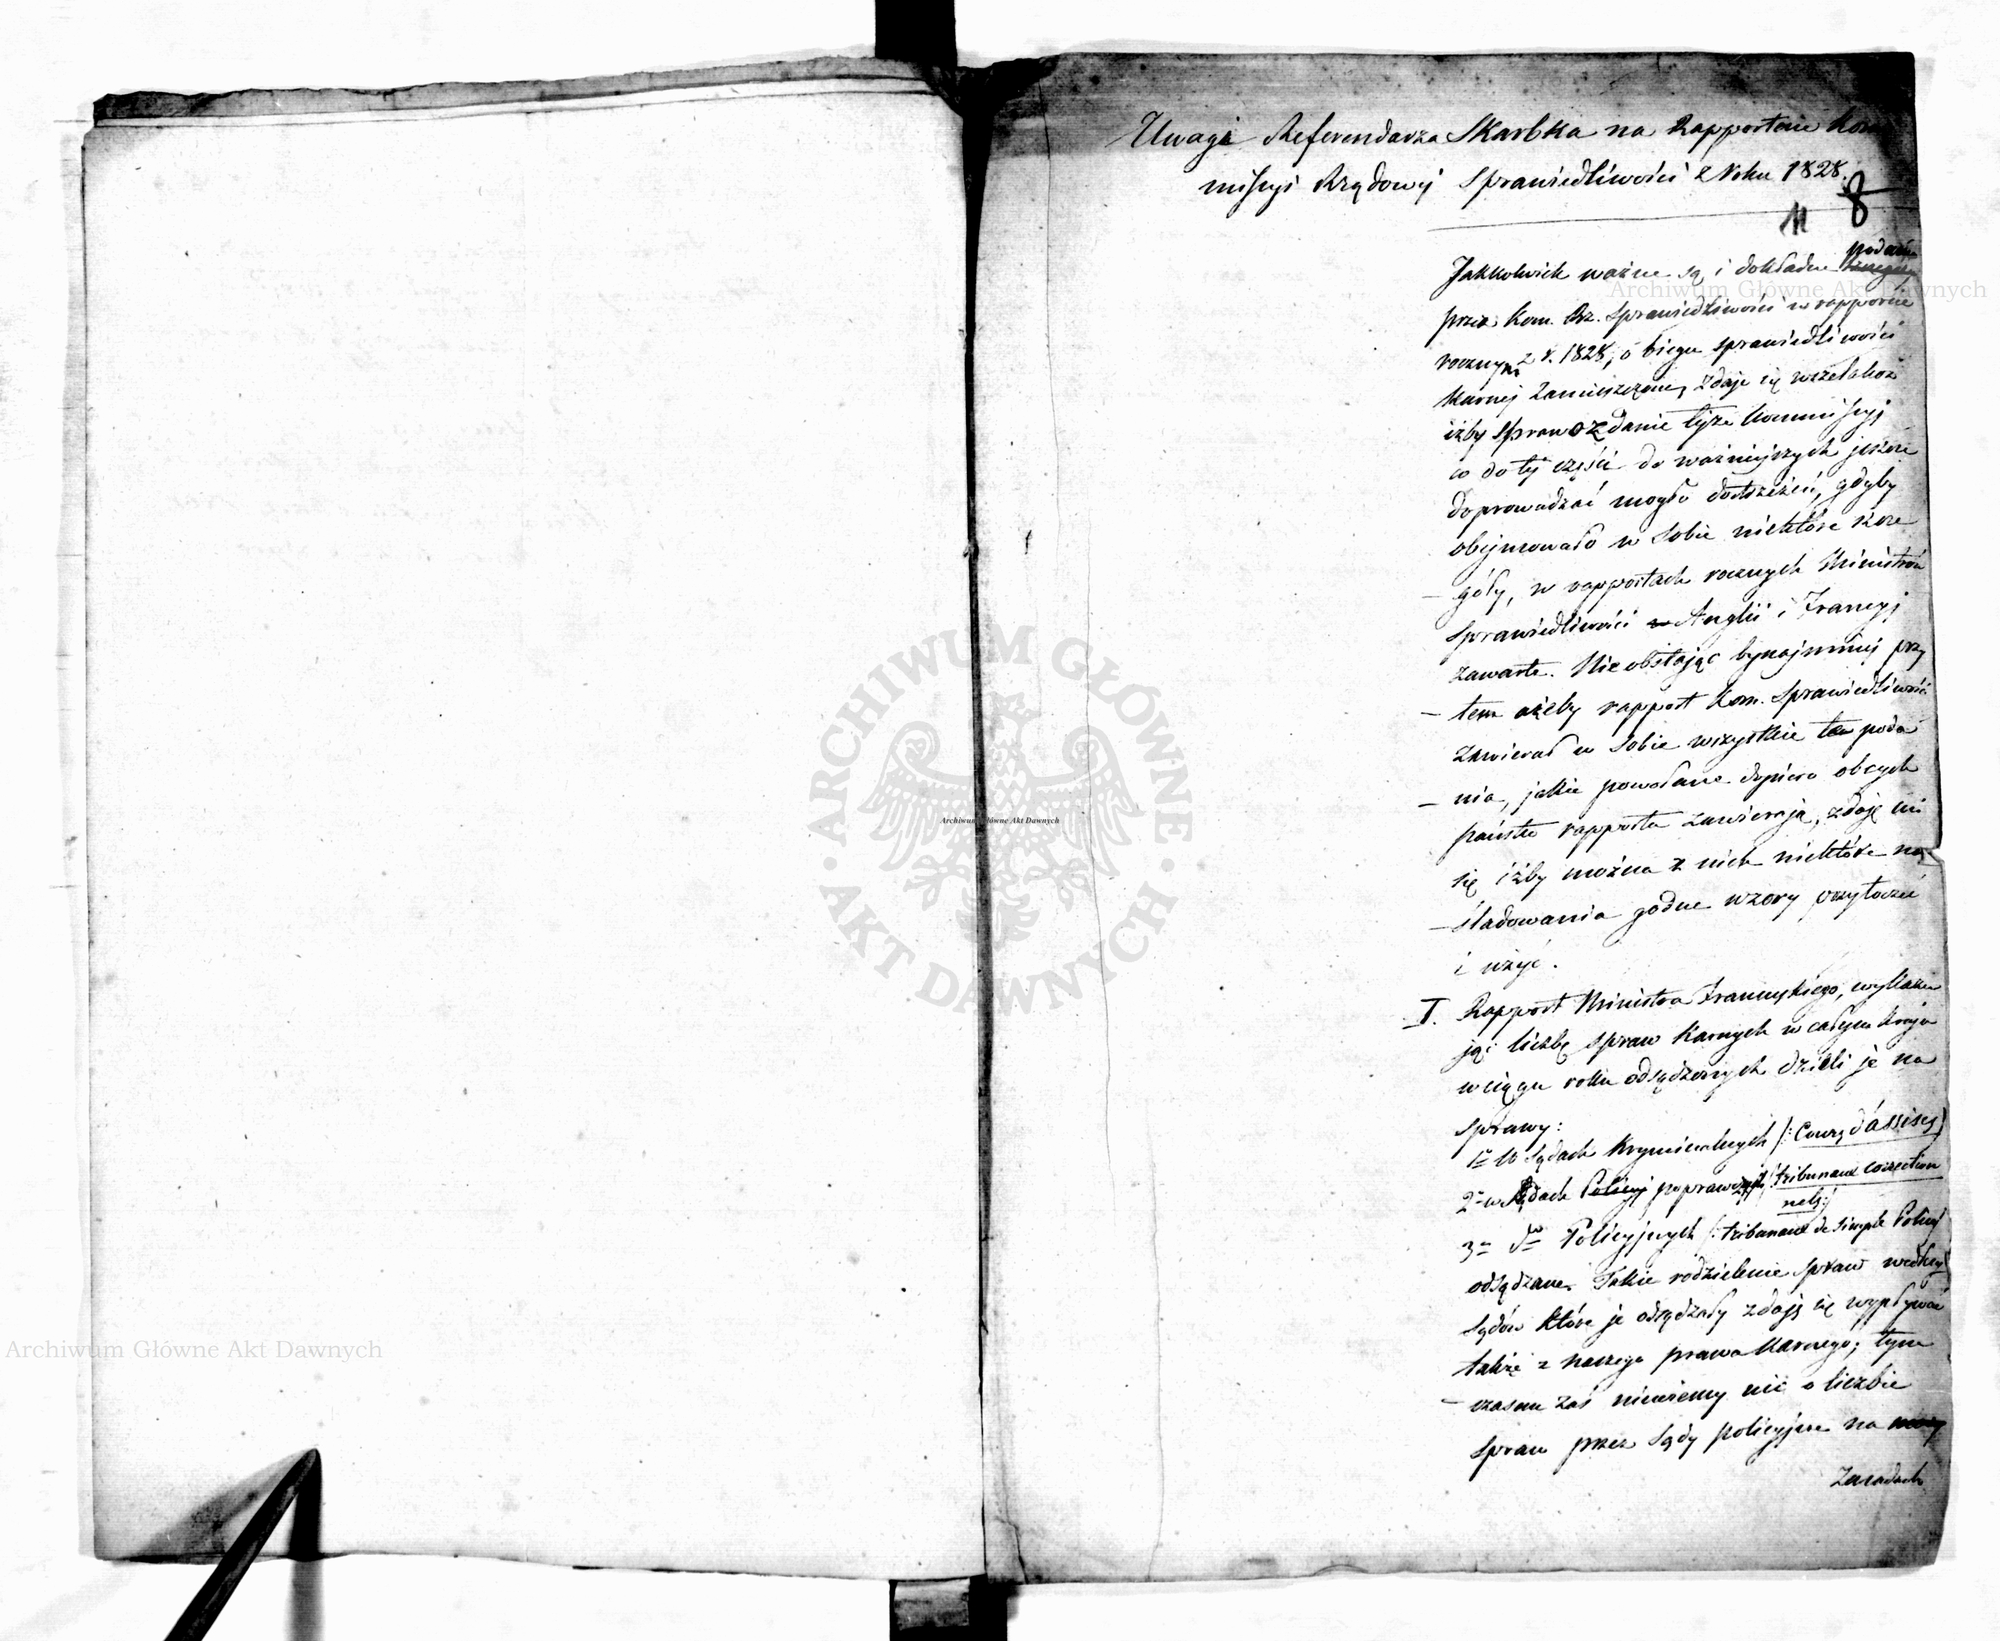 Uwagi Referendarza Skarbka na Rapporcie Kom
missyi Rządowej Sprawiedliwości z Roku 1828.
11 8
Jakkolwiek ważne są i dokładne podania
przez Kom. Rz. Sprawiedliwości w rapporcie
rocznym z r. 1828, o biegu sprawiedliwości
karnej zamieszczone, zdaje się wszelakoż
iżby sprawozdanie tyże Kommissyj
co do tej części do ważniejszych jeszcze
doprowadzać mogło dostrzeżeń, gdyby
obejmowało w sobie niektóre szcze
- góły, w rapportach rocznych Ministrów
Sprawiedliwości w Anglii i Francyj
zawarte. Nie obstając bynajmniej przy
- tem ażeby rapport Kom. Sprawiedliwości
zawierał w sobie wszystkie te poda
- nia, jakie powołane dopiero obcych
państw rapporta zawierają, zdaje mi
się iżby można z nich niektóre na
- śladowania godne wzory przytoczyć
i użyć.
I. Rapport Ministra Francuskiego, wylicza
jąc liczbę spraw karnych w całym kraju
w ciągu roku odsądzonych dzieli je na
sprawy:
1e W Sądach Kryminalnych (: Cours d'assises)
2e w Sądach Policyj poprawczej (: tribunaux correction
nels :)
3e do Policyjnych (: tribunaux de simple Police
odsądzane. Takie rozdzielenie spraw według
Sądów które je odsądzały zdaje się wypływać
także z naszego prawa karnego; tym
- czasem zaś niewiemy nic o liczbie
spraw przez Sądy policyjne na
Zasadach
Archiwum Główne Akt Dawnych
ARCHIWUM GŁÓWNE · AKT DAWNYCH ·
Archiwum Główne Akt Dawnych
Archiwum Główne Akt Dawnych